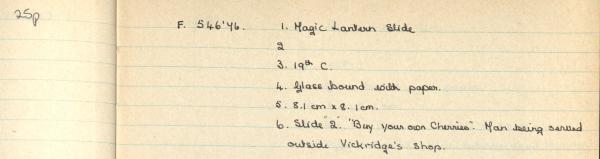 25p
F. 546'76. 1. Magic Lantern Slide
2
3. 19th C.
4. Glass bound with paper.
5. 8.1 cm x 8.1cm.
6. Slide "2". "Buy your own Cherries". Man being served
outside Vickridge's shop.